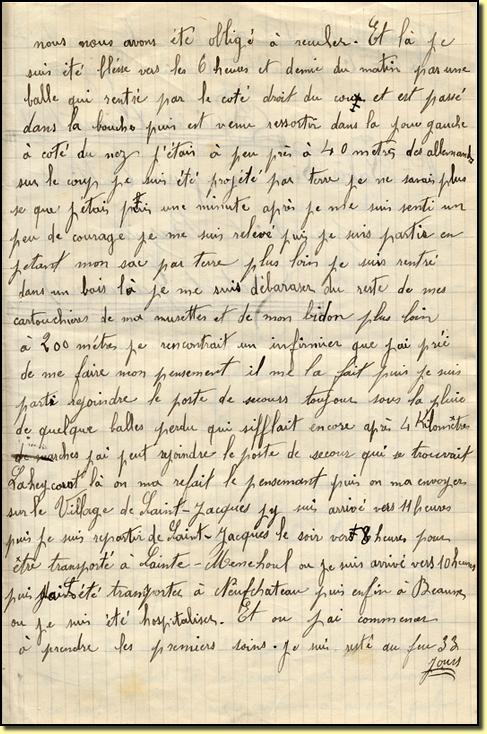 nous nous avons été obligé à reculer. Et là je
suis été blésse vers les 6 heures et demie du matin par une
balle qui rentré par le coté droit du cou et est passé
dans la bouche puis est venu ressortir dans la joue gauche
à coté du nez j'étais à peu près à 40 mètres des allemands
sur le coup je suis été projété par terre je ne savais plus
se que j'étais puis une minute après je me suis senti un
peu de courage je me suis relevé puis je suis partis en
jetant mon sac par terre plus loin je suis rentré
dans un bois là je me suis débaraser du reste de mes
cartouchières de ma musettes et de mon bidon plus loin
à 200 mètres je rencontrait un infirmier que j'ai prié
de me faire mon pensement il me la fait puis je suis
parti rejoindre le poste de secours toujour sous la pluie
de quelque balles perdu qui sifflait encore après 4 Kilomètres
de marches j'ai peut rejoindre le poste de secour qui se trouvait
là on ma refait le pensement puis on ma envoyer
sur le Village de Saint-Jacques j'y suis arrivé vers 11 heures
puis je suis repartir de Saint-Jacques le soir vers 8 heures pour
être transporté à Sainte-Menehoul ou je suis arrivé vers 10 heures
puis j'ait été transportes à Neufchateau puis enfin à Beaune
ou je suis été hospitaliser. Et ou j'ai commencer
à prendre les premiers soins. je suis resté au feu 33
jours